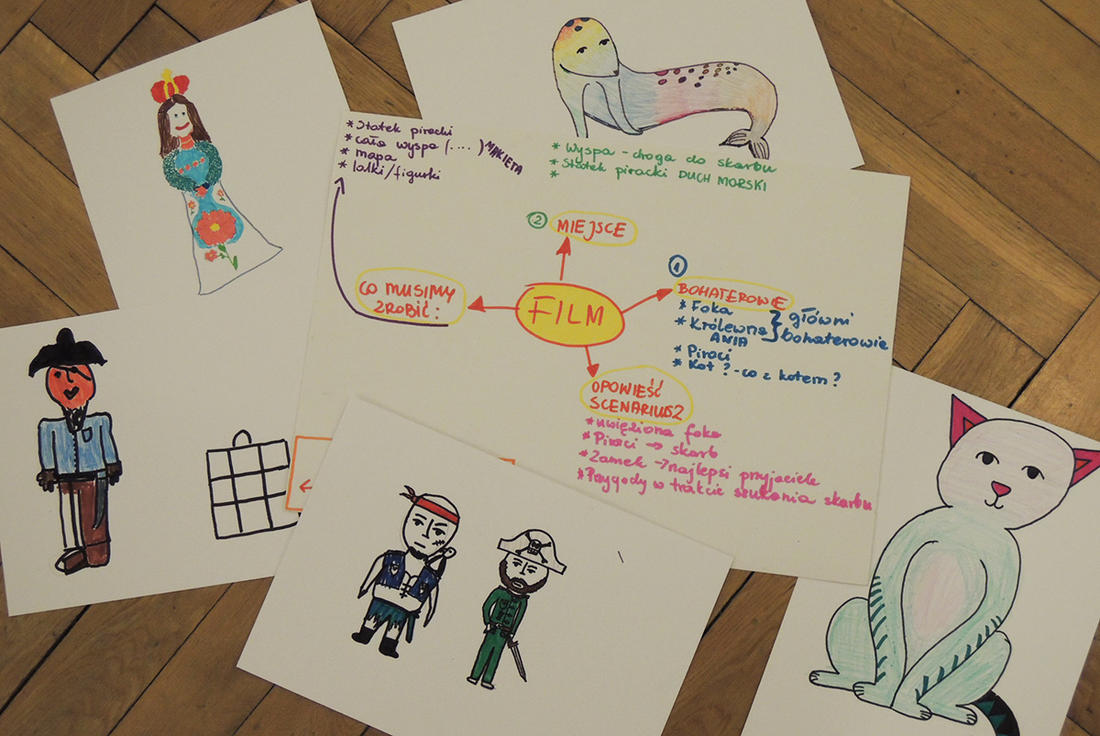 * Statek piracki
* cała wyspa (....) MAKIETA
* mapa
* łodki/figurki
* Wyspa - droga do skarbu
* Statek piracki DUCH MORSKI
*
② MIEJSCE
CO MUSIMY
ZROBIĆ:
FILM
①
BOHATEROWIE
* Foka
* Królewna
ANIA
} główni
bohaterowie
* Piraci
* Kot ? - co z kotem?
OPOWIEŚĆ
SCENARIUSZ
* uwięziona foka
* Piraci → skarb
* Zamek → najlepsi przyjaciele
* Przygody w trakcie szukania skarbu